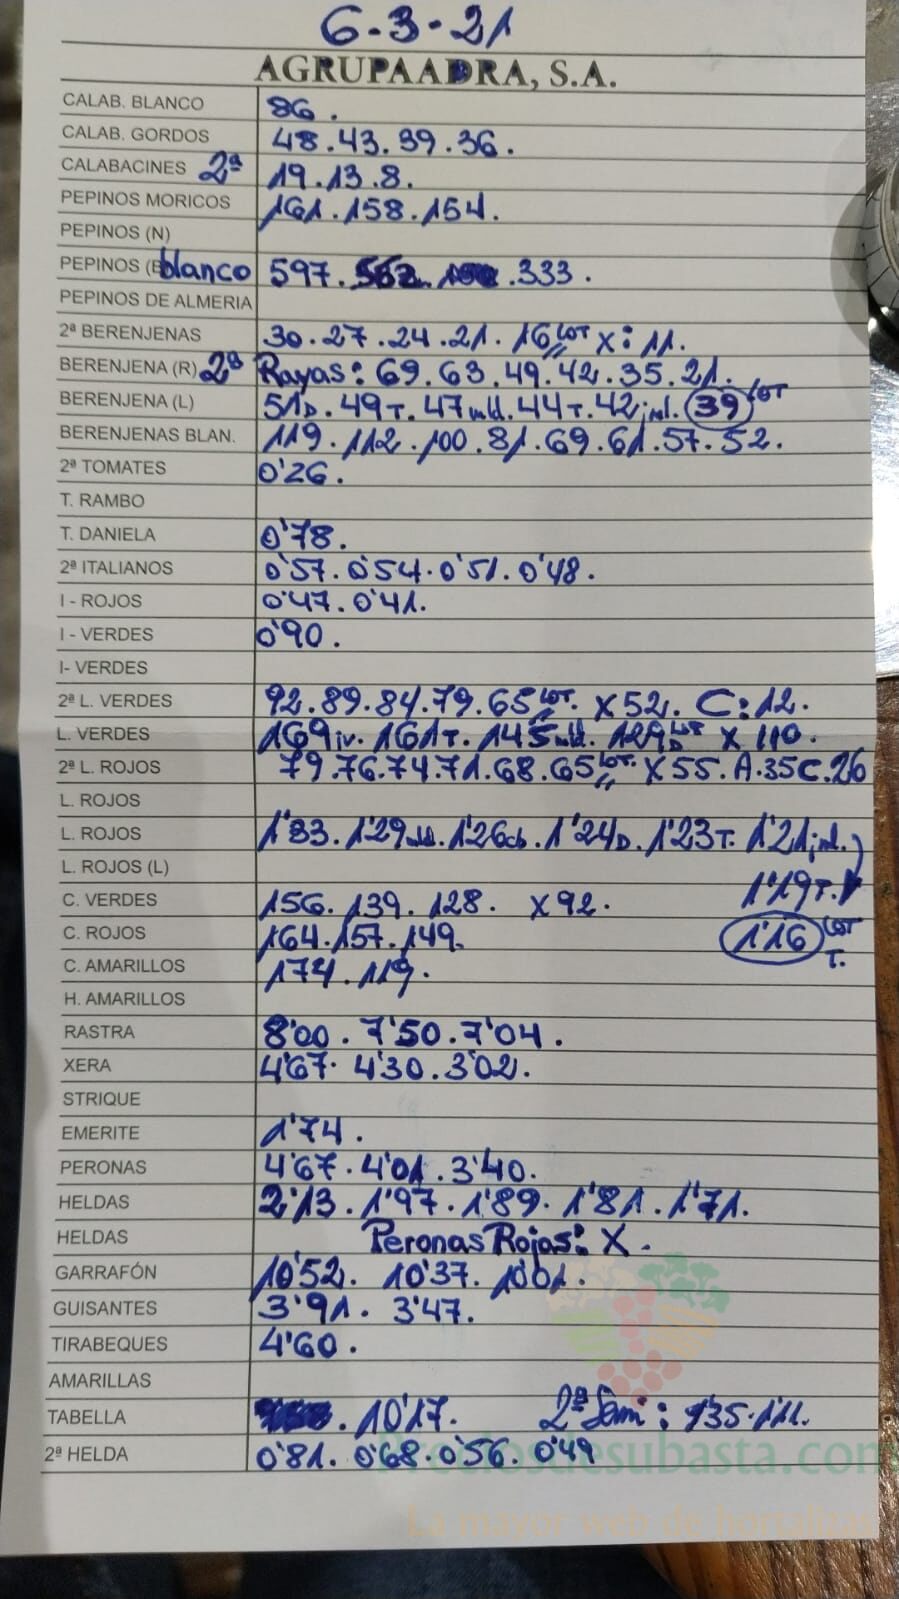 6-3-21
AGRUPAADRA, S.A.
CALAB. BLANCO 86.
CALAB. GORDOS 48.43.39.36.
CALABACINES 2ª 19.13.8.
PEPINOS MORICOS 161.158.154.
PEPINOS (N)
PEPINOS (B blanco 597. .333.
PEPINOS DE ALMERIA
2ª BERENJENAS 30.27.24.21.16 LOT x: 11.
BERENJENA (R) 2ª Rayas: 69.63.49.42.35.21.
BERENJENA (L) 51D.49T.47mld.44T.42jml. 39 LOT
BERENJENAS BLAN. 119.112.100.81.69.61.57.52.
2ª TOMATES 0'26.
T. RAMBO
T. DANIELA 0'78.
2ª ITALIANOS 0'57.0'54.0'51.0'48.
I - ROJOS 0'47.0'41.
I - VERDES 0'90.
I- VERDES
2ª L. VERDES 92.89.84.79.65 LOT. X52. C:12.
L. VERDES 169iv.161T.145mld.129D LOT X 110.
2ª L. ROJOS 79.76.74.71.68.65 LOT. X55.A.35C.26
L. ROJOS
L. ROJOS 1'33.1'29mld.1'26cb.1'24D.1'23T.1'21jml.
L. ROJOS (L) 1'19T.
C. VERDES 156.139.128. X92.
C. ROJOS 164.157.149. 1'16 LOT T.
C. AMARILLOS 174.119.
H. AMARILLOS
RASTRA 8'00.7'50.7'04.
XERA 4'67.4'30.3'02.
STRIQUE
EMERITE 1'74.
PERONAS 4'67.4'01.3'40.
HELDAS 2'13.1'97.1'89.1'81.1'71.
HELDAS Peronas Rojas: X.
GARRAFÓN 10'52. 10'37. 10'01.
GUISANTES 3'91. 3'47.
TIRABEQUES 4'60.
AMARILLAS
TABELLA . 10'17. 2ª Semi: 1'35.1'11.
2ª HELDA 0'81.0'68.0'56.0'49
Preciosdesubasta.com
La mayor web de hortalizas